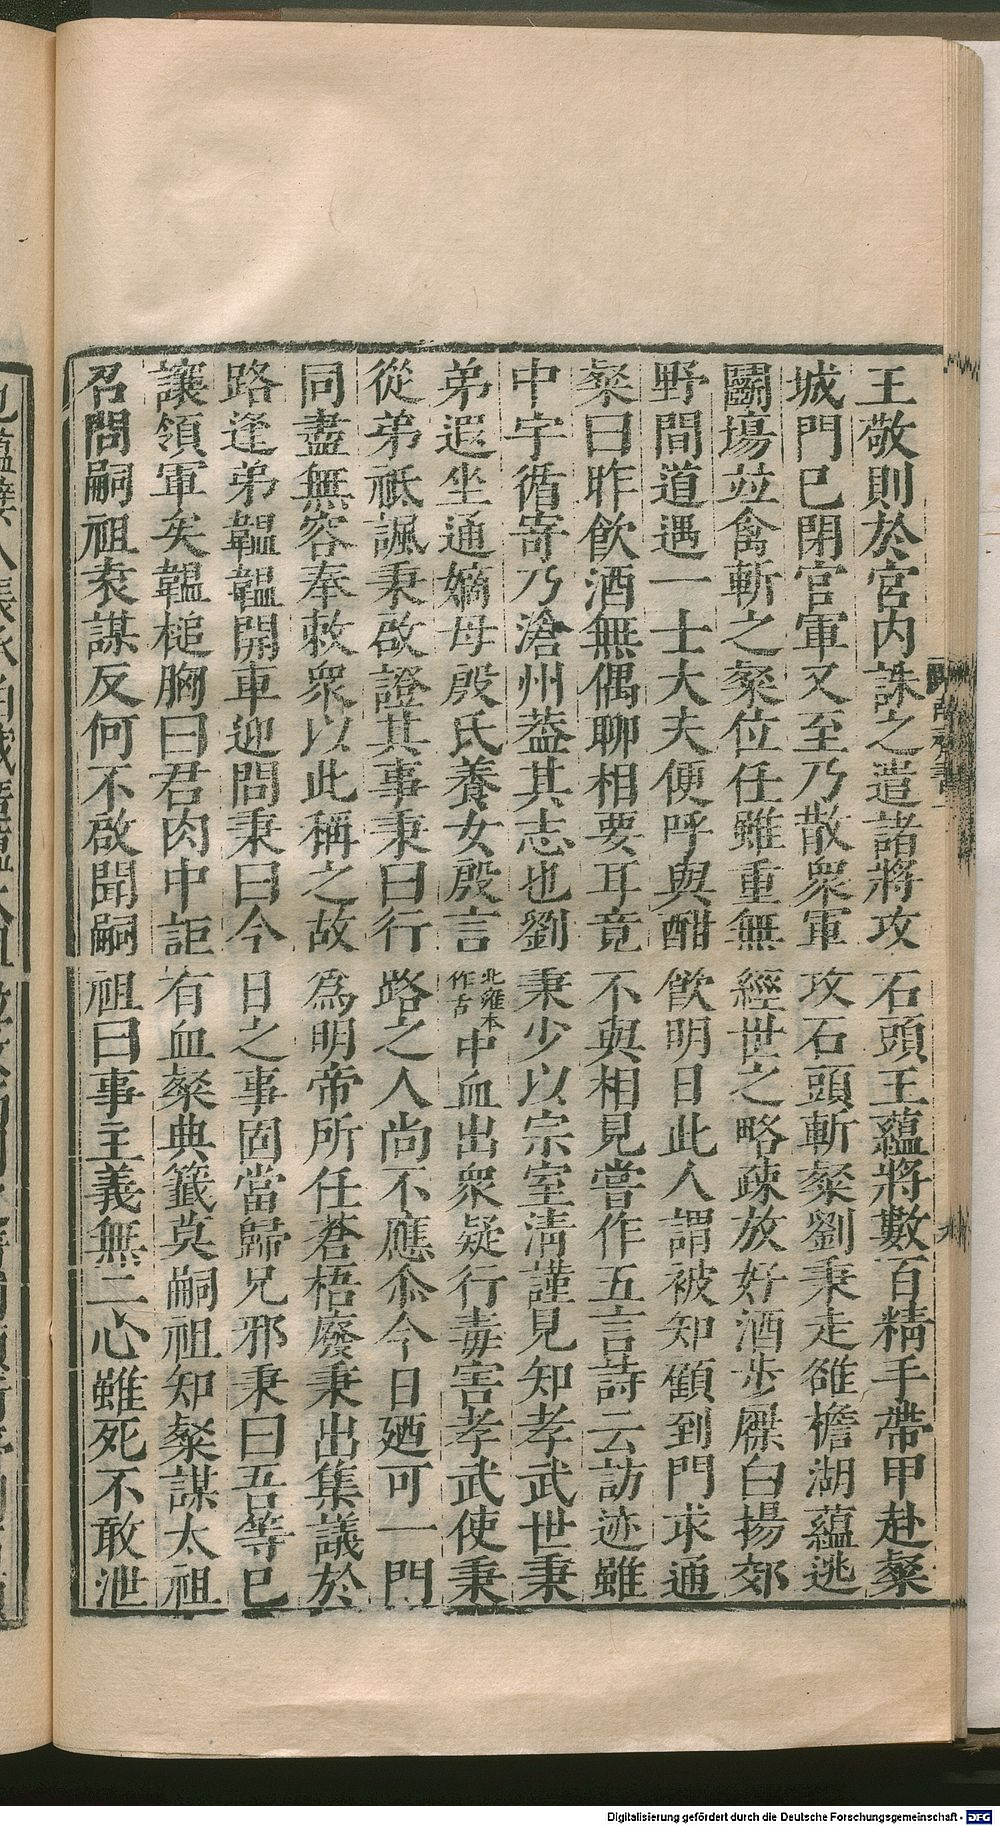 王敬則於宮內誅之遣諸將攻石頭王蘊將數百精手帶甲赴粲
城門已閉官軍又至乃散衆軍攻石頭斬粲劉秉走雒檐湖蘊逃
鬭場並禽斬之粲位任雖重無經世之略疎放好酒步屧白揚郊
野間道遇一士大夫便呼與酣飲明日此人謂被知顧到門求通
粲曰昨飲酒無偶聊相要耳竟不與相見嘗作五言詩云訪迹雖
中宇循寄乃滄州葢其志也劉秉少以宗室清謹見知孝武世秉
弟遐坐通嫡母殷氏養女殷言北雍本作古中血出衆疑行毒害孝武使秉
從弟祗諷秉啟證其事秉曰行路之人尚不應尒今日廼可一門
同盡無容奉敕衆以此稱之故為明帝所任蒼梧廢秉出集議於
路逢弟韞韞開車迎問秉曰今日之事固當歸兄邪秉曰吾等已
讓領軍矣韞槌胸曰君肉中詎有血粲典籤莫嗣祖知粲謀太祖
召問嗣祖袁謀反何不啟聞嗣祖曰事主義無二心雖死不敢泄
Digitalisierung gefördert durch die Deutsche Forschungsgemeinschaft - DFG